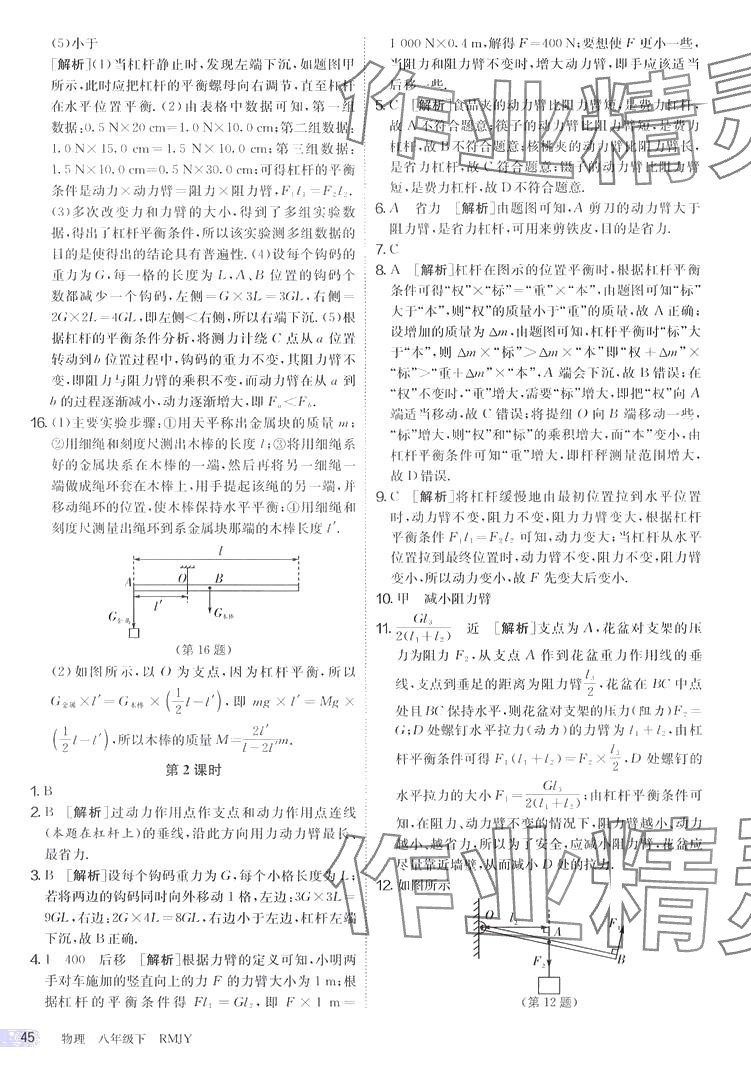 (5)小于
[解析](1)当杠杆静止时,发现左端下沉,如题图甲
所示,此时应把杠杆的平衡螺母向右调节,直至杠杆
在水平位置平衡.(2)由表格中数据可知,第一组
数据:0.5 N×20 cm=1.0 N×10.0 cm;第二组数据:
1.0 N×15.0 cm=1.5 N×10.0 cm;第三组数据:
1.5 N×10.0 cm=0.5 N×30.0 cm;可得杠杆的平衡
条件是动力×动力臂=阻力×阻力臂,F₁l₁=F₂l₂.
(3)多次改变力和力臂的大小,得到了多组实验数
据,得出了杠杆平衡条件,所以该实验测多组数据的
目的是使得出的结论具有普遍性.(4)设每个钩码的
重力为G,每一格的长度为L,A、B位置的钩码个
数都减少一个钩码,左侧=G×3L=3GL,右侧=
2G×2L=4GL,即左侧<右侧,所以右端下沉.(5)根
据杠杆的平衡条件分析,将测力计绕C点从a位置
转动到b位置过程中,钩码的重力不变,其阻力臂不
变,即阻力与阻力臂的乘积不变,而动力臂在从a到
b的过程逐渐减小,动力逐渐增大,即Fₐ<F_b.
16. (1)主要实验步骤:①用天平称出金属块的质量m;
②用细绳和刻度尺测出木棒的长度l;③将用细绳系
好的金属块系在木棒的一端,然后再将细绳一
端做成绳环套在木棒上,用手提起该绳的另一端,并
移动绳环的位置,使木棒保持水平平衡;④用细绳和
刻度尺测量出绳环到系金属块那端的木棒长度l′.
l
A O B
l′
G金属 G木棒
(第16题)
(2)如图所示,以O为支点,因为杠杆平衡,所以
G金属×l′=G木棒×(1/2 l-l′),即 mg×l′=Mg×
(1/2 l-l′),所以木棒的质量M=2l′/(l-2l′) m.
第2课时
1. B
2. B [解析]过动力作用点作支点和动力作用点连线
(本题在杠杆上)的垂线,沿此方向用力动力臂最长、
最省力.
3. B [解析]设每个钩码重力为G,每个小格长度为L;
若将两边的钩码同时向外移动1格,左边:3G×3L=
9GL,右边:2G×4L=8GL,右边小于左边,杠杆左端
下沉,故B正确.
4. 1 400 后移 [解析]根据力臂的定义可知,小明两
手对车施加的竖直向上的力F的力臂大小为1 m;根
据杠杆的平衡条件得 Fl₁=Gl₂,即 F×1 m=
1 000 N×0.4 m,解得F=400 N;要想使F更小一些,
当阻力和阻力臂不变时,增大动力臂,即手应该适当
后移一些.
5. C [解析]食品夹的动力臂比阻力臂短,是费力杠杆,
故A不符合题意;筷子的动力臂比阻力臂短,是费力
杠杆,故B不符合题意;核桃夹的动力臂比阻力臂长,
是省力杠杆,故C符合题意;镊子的动力臂比阻力臂
短,是费力杠杆,故D不符合题意.
6. A 省力 [解析]由题图可知,A剪刀的动力臂大于
阻力臂,是省力杠杆,可用来剪铁皮,目的是省力.
7. C
8. A [解析]杠杆在图示的位置平衡时,根据杠杆平衡
条件可得“权”ד标”=“重”ד本”,由题图可知“标”
大于“本”,则“权”的质量小于“重”的质量,故A正确;
设增加的质量为Δm,由题图可知,杠杆平衡时“标”大
于“本”,则Δm×“标”>Δm×“本”即“权+Δm”×
“标”>“重+Δm”ד本”,A端会下沉,故B错误;在
“权”不变时,“重”增大,需要“标”增大,即把“权”向A
端适当移动,故C错误;将提纽O向B端移动一些,
“标”增大,则“权”和“标”的乘积增大,而“本”变小,由
杠杆平衡条件可知“重”增大,即杆秤测量范围增大,
故D错误.
9. C [解析]将杠杆缓慢地由最初位置拉到水平位置
时,动力臂不变,阻力不变,阻力力臂变大,根据杠杆
平衡条件F₁l₁=F₂l₂可知,动力变大;当杠杆从水平
位置拉到最终位置时,动力臂不变,阻力不变,阻力臂
变小,所以动力变小,故F先变大后变小.
10. 甲 减小阻力臂
11. Gl₃/2(l₁+l₂) 近 [解析]支点为A,花盆对支架的压
力为阻力F₂,从支点A作到花盆重力作用线的垂
线,支点到垂足的距离为阻力臂l₃/2,花盆在BC中点
处且BC保持水平,则花盆对支架的压力(阻力)F₂=
G,D处螺钉水平拉力(动力)的力臂为l₁+l₂,由杠
杆平衡条件可得F₁(l₁+l₂)=F₂×l₃/2,D处螺钉的
水平拉力的大小F₁=Gl₃/2(l₁+l₂);由杠杆平衡条件可
知,在阻力、动力臂不变的情况下,阻力臂越小,动力
越小、越省力,所以为了安全,应减小阻力臂,花盆应
尽量靠近墙壁,从而减小D处的拉力.
12. 如图所示
O l₂ A F₁ F₂ B
(第12题)
45 物理 八年级下 RMJY
作业精灵
作业精灵